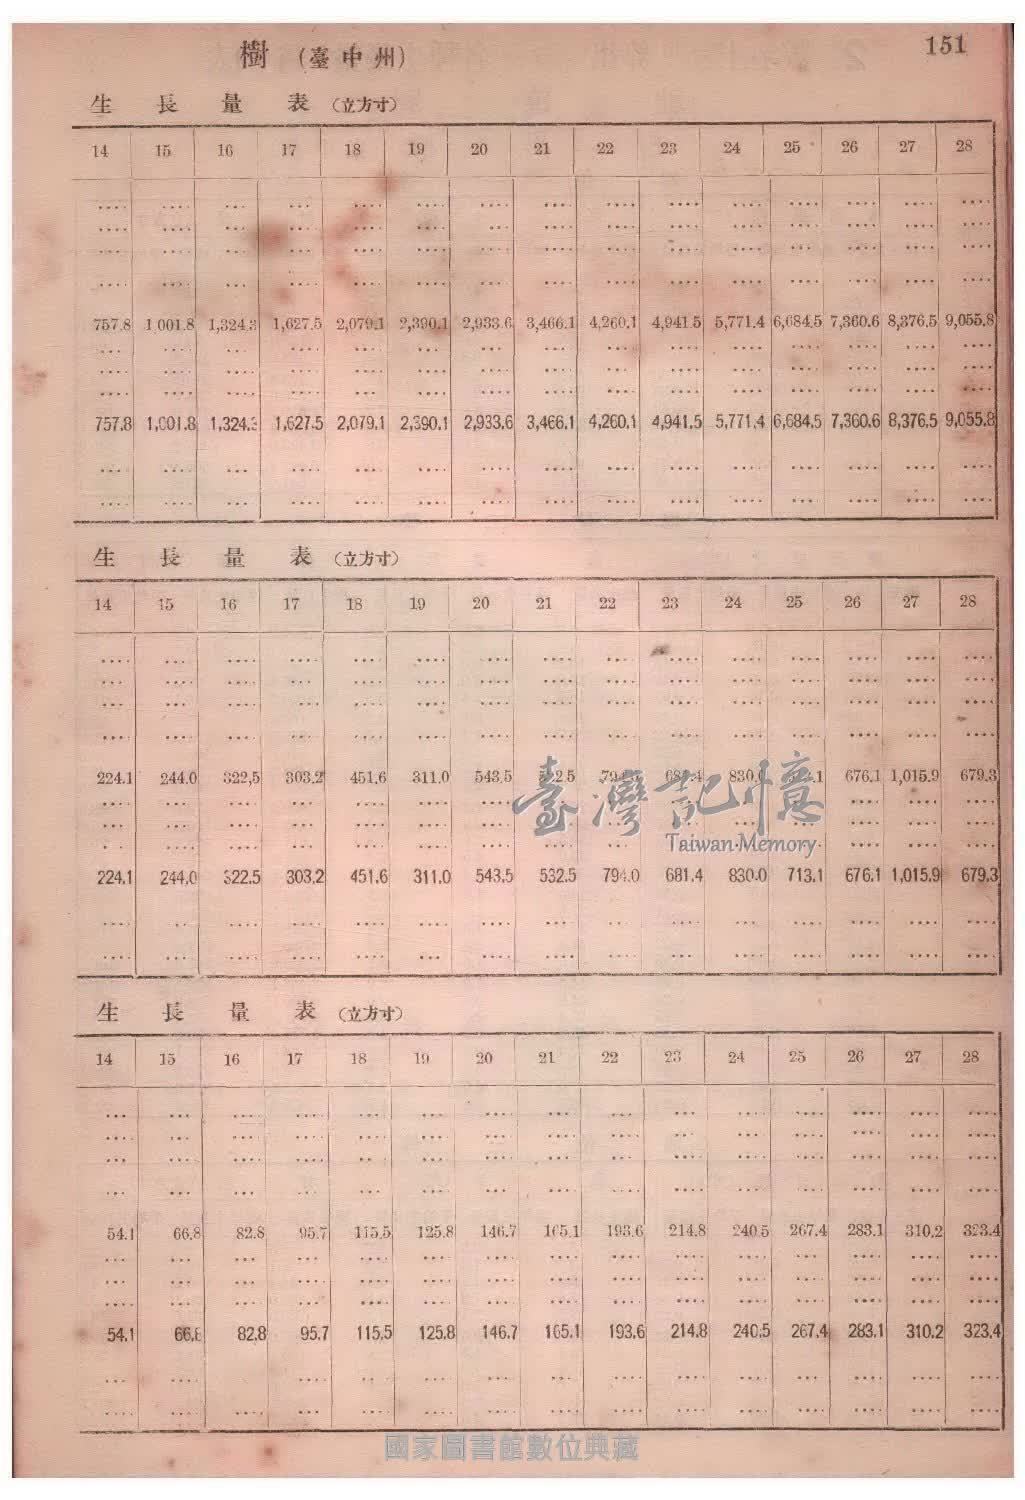 樹 (臺中州) 151
生長量表 (立方寸)
14 15 16 17 18 19 20 21 22 23 24 25 26 27 28
.... .... ... ... .... .... .... .... .... .... .... .... .... .... ....
.... .... .... .... .... .... ... .... .... .... .... .... .... .... ....
.... .... .... .... .... .... .... .... .... .... .... ... .... .... ....
.... .... .... .... .... .... .... .... .... .... .... .... .... .... ....
757.8 1,001.8 1,324.3 1,627.5 2,079.1 2,390.1 2,933.6 3,466.1 4,260.1 4,941.5 5,771.4 6,684.5 7,360.6 8,376.5 9,055.8
... .... ... .... .... .... ... .... ... .... .... .... .... .... ....
.... .... .... .... .... .... .... .... .... .... .... .... .... .... ....
.... .... .... .... .... .... .... .... .... .... .... .... .... .... ....
757.8 1,001.8 1,324.3 1,627.5 2,079.1 2,390.1 2,933.6 3,466.1 4,260.1 4,941.5 5,771.4 6,684.5 7,360.6 8,376.5 9,055.8
.... .... ... .... .... .... .... .... .... .... .... .... .... .... ....
.... .... .... .... .... .... .... .... .... .... .... .... .... .... ....
生長量表 (立方寸)
14 15 16 17 18 19 20 21 22 23 24 25 26 27 28
.... ... .... ... .... .... .... .... .... .... .... .... .... .... ....
... ... .... ... .... .... .... .... .... .... .... .... .... .... ....
... ... .... .... .... .... .... .... .... .... .... .... .... .... ....
.... .... ... .... .... .... .... .... .... .... .... .... .... .... ....
224.1 244.0 322.5 303.2 451.6 311.0 543.5 532.5 681.4 830.0 676.1 1,015.9 679.3
臺灣記憶
.... .... .... .... .... .... .... .... .... .... .... .... .... .... ....
... .... .... .... .... .... .... .... .... .... .... .... .... .... ....
Taiwan Memory
.... .... .... .... .... .... .... .... .... .... .... .... .... .... ....
224.1 244.0 322.5 303.2 451.6 311.0 543.5 532.5 794.0 681.4 830.0 713.1 676.1 1,015.9 679.3
.... .. .... .... .... .... .... .... ... .... .... .... .... .... ....
.... .... .... .... .... ... .... .... .... .... .... .... .... .... ....
生長量表 (立方寸)
14 15 16 17 18 19 20 21 22 23 24 25 26 27 28
... ... .... .... .... ... .... ... ... ... .... .... .... .... ....
.... ... .... .... .... .... .... .... .... ... .... .... .... .... ....
... ... .... .... .. .... .... .... .... .... .... .... .... .... ....
... ... ... ... .... .... ... .... .... .... .... .... .... .... ....
54.1 66.8 82.8 95.7 115.5 125.8 146.7 165.1 193.6 214.8 240.5 267.4 283.1 310.2 323.4
... ... .... .... .... .... .... .... .... .... .... .... .... .... ....
.... ... .... .... .... .... .... .... .... .... .... .... .... .... ....
.... .... .... .... .... .... .... .... .... .... .... .... .... .... ....
54.1 66.8 82.8 95.7 115.5 125.8 146.7 165.1 193.6 214.8 240.5 267.4 283.1 310.2 323.4
... .... .... .. .... .... .... .... .... .... .... .... .... ....
.... .... .... .... .... .... .... .... .... .... .... .... .... .... ....
國家圖書館數位典藏